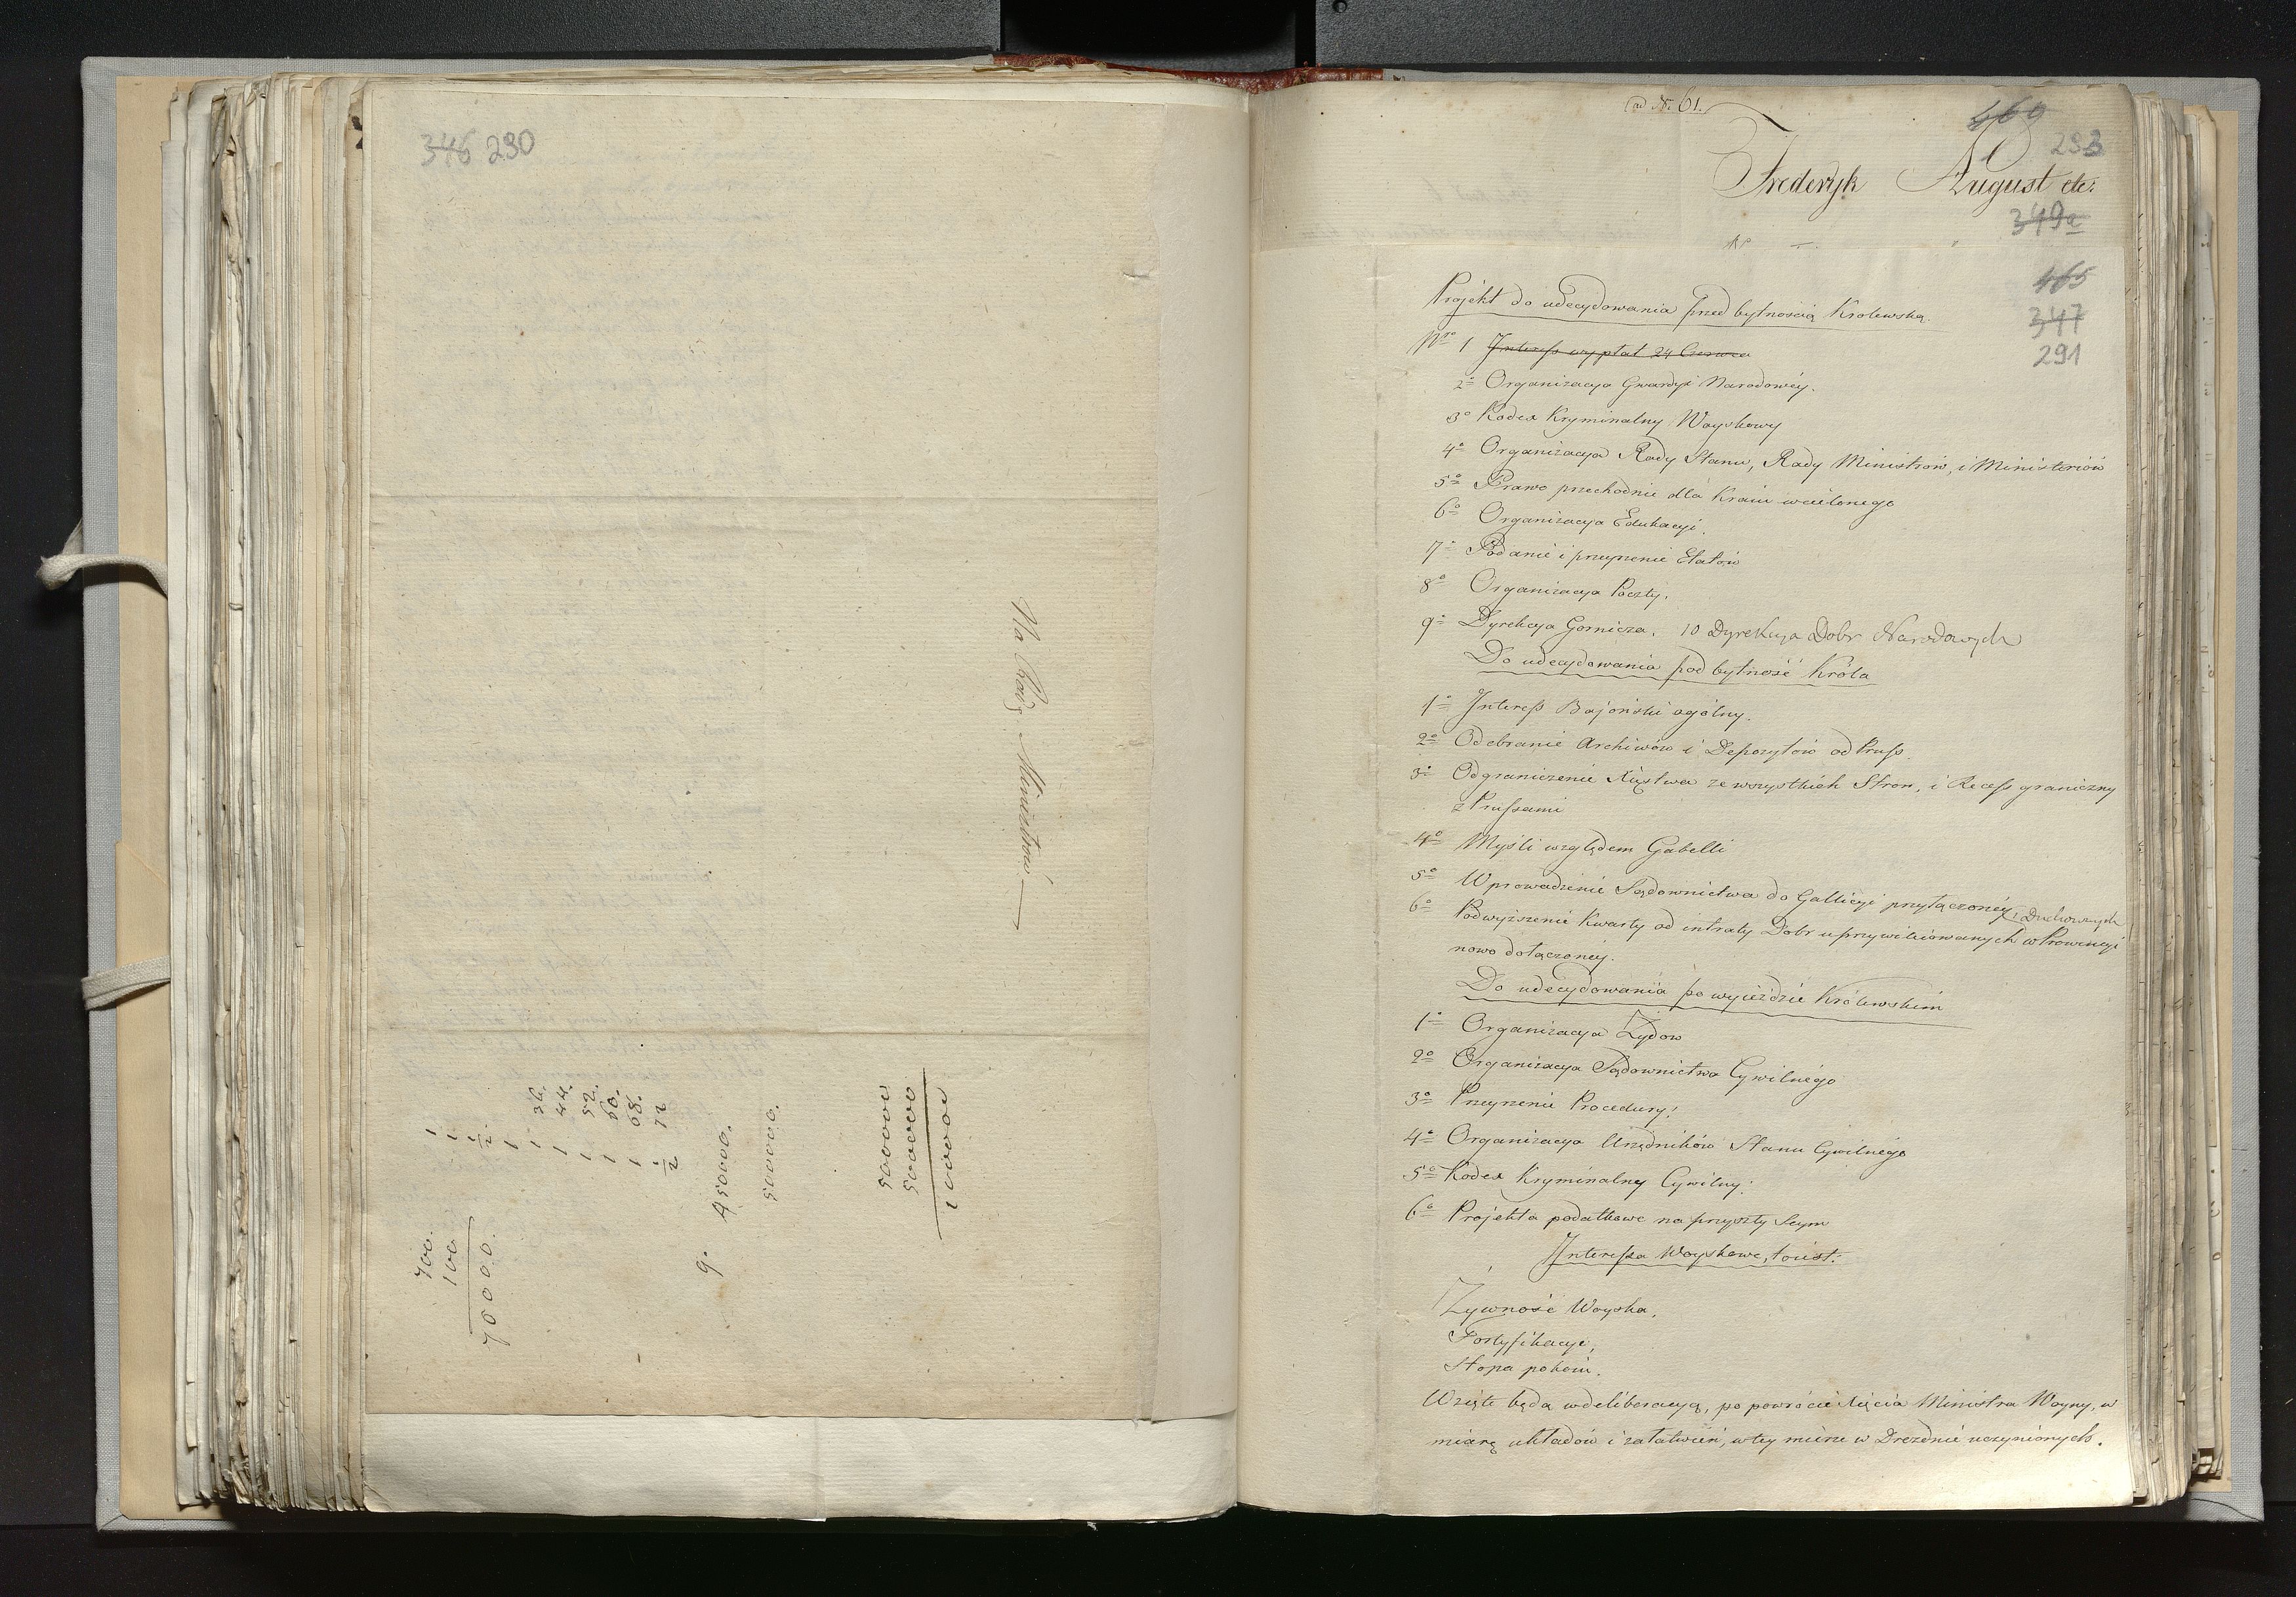 346 290
Na Radę Ministrów
1
1
1/2
1
36. 1
44. 1
52. 1
60. 1
68. 1
72 1/2
700.
100
70000.
9. 450000.
500000.
500000
500000
100000
ad N. 61.
469
293
Frederyk August etc:
349a
465
347
291
Projekt do udecydowania przed bytnością Krolewską.
Nro 1 Interess wypłat 24 Czerwca
2o Organizacya Gwardyi Narodowéy.
3o Kodex Kryminalny Woyskowy
4o Organizacya Rady Stanu, Rady Ministrów, i Ministeriów
5o Prawo przechodnie dla Kraiu wcielonego
6o Organizacya Edukacyi.
7o Podanie i przeyrzenie Etatów
8o Organizacya Poczty.
9o Dyrekcya Gornicza. 10 Dyrekcya Dobr Narodowych
Do udecydowania pod bytność Króla
1o Interess Bajoński ogólny.
2o Odebranie Archiwów i Depozytów od Pruss.
3o Odgraniczenie Xięstwa ze wszystkich Stron, i Recess graniczny
z Prussami
4o Myśli względem Gabelli
5o Wprowadzenie Sądownictwa do Gallicyi przyłączonéy
6o Podwyższenie Kwarty od intraty Dobr uprzywiliiowanych i Duchownych w Prowincyi
nowo dołączoney.
Do udecydowania po wyieździe Królewskim
1o Organizacya Żydow
2o Organizacya Sądownictwa Cywilnégo
3o Przeyrzenie Procedury.
4o Organizacya Urzędników Stanu Cywilnégo
5o Kodex Kryminalny Cywilny.
6o Projekta podatkowe na przyszły Seym
Interessa Woyskowe, to iest:
Żywność Woyska.
Fortyfikacye,
Stopa pokoiu.
Wzięte będą w deliberacyą, po powrócie Xięcia Ministra Woyny, w
miarę układów i załatwień, w tey mierze w Dreznie uczynionych.